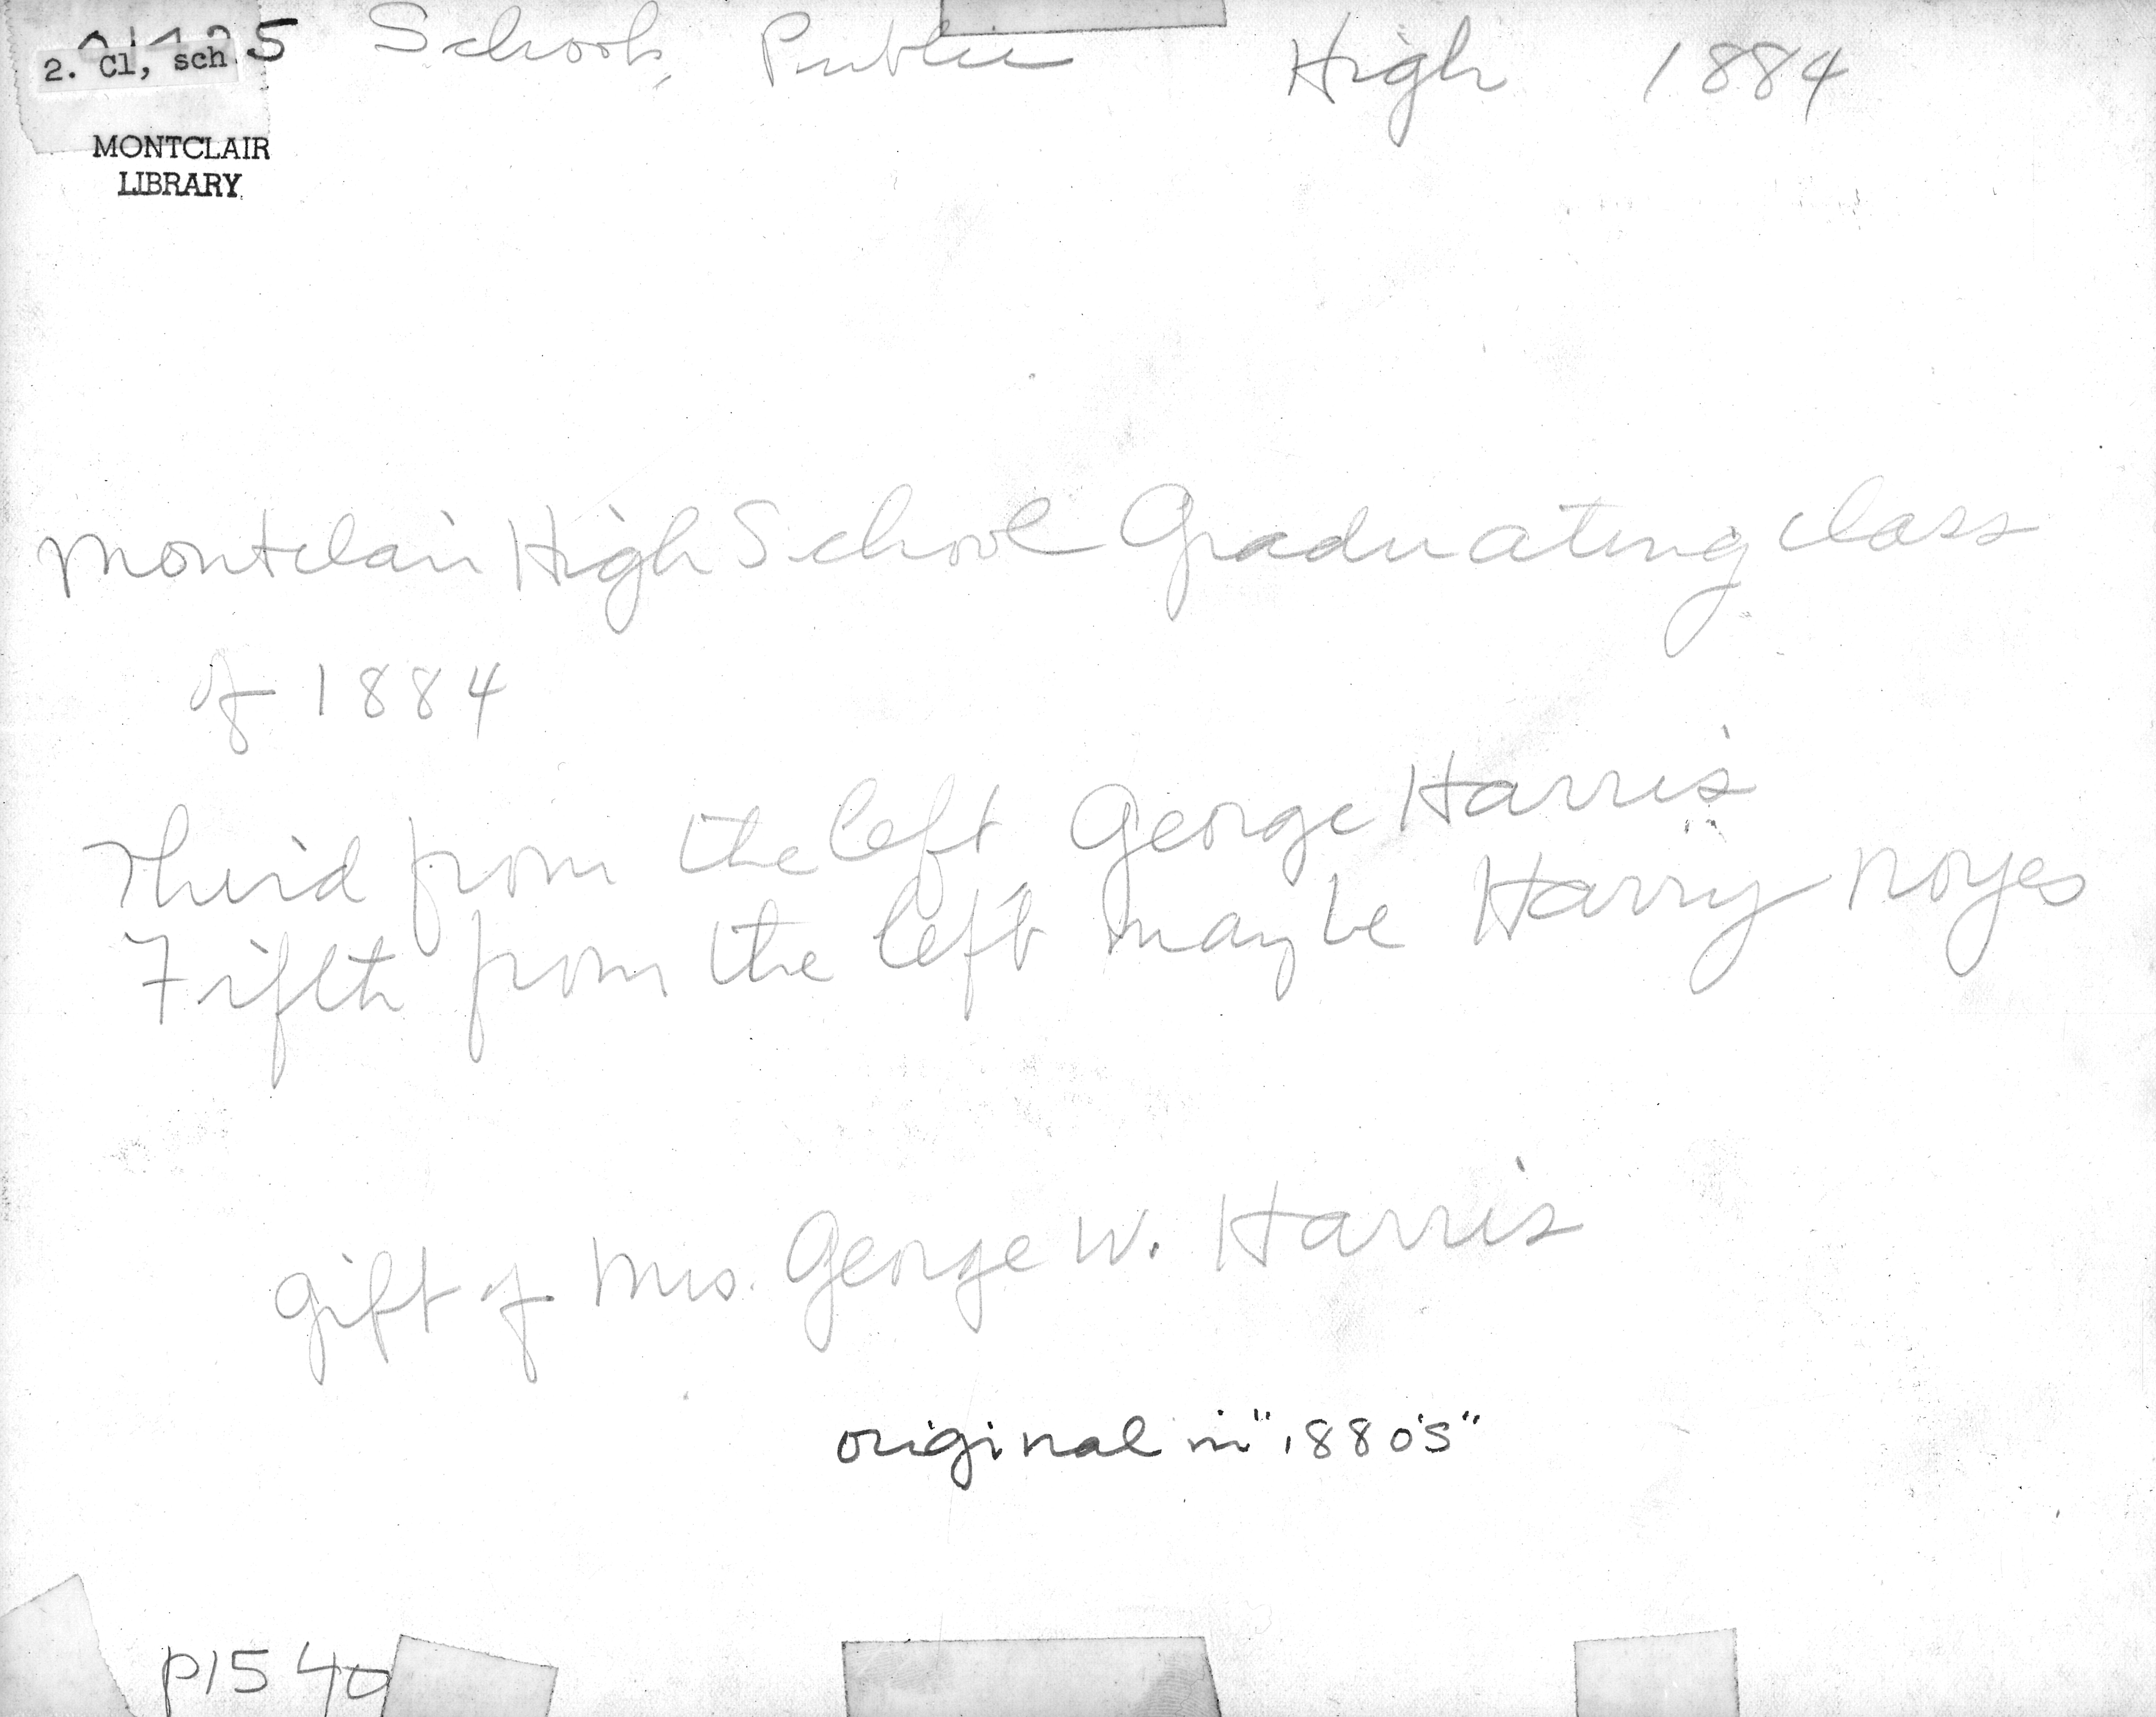 2. Cl, sch.
Schools, Public High 1884
MONTCLAIR
LIBRARY
Montclair High School Graduating class
of 1884
Third from the left George Harris
Fifth from the left may be Harry Noyes
gift of Mrs. George W. Harris
original in "1880's"
P1540